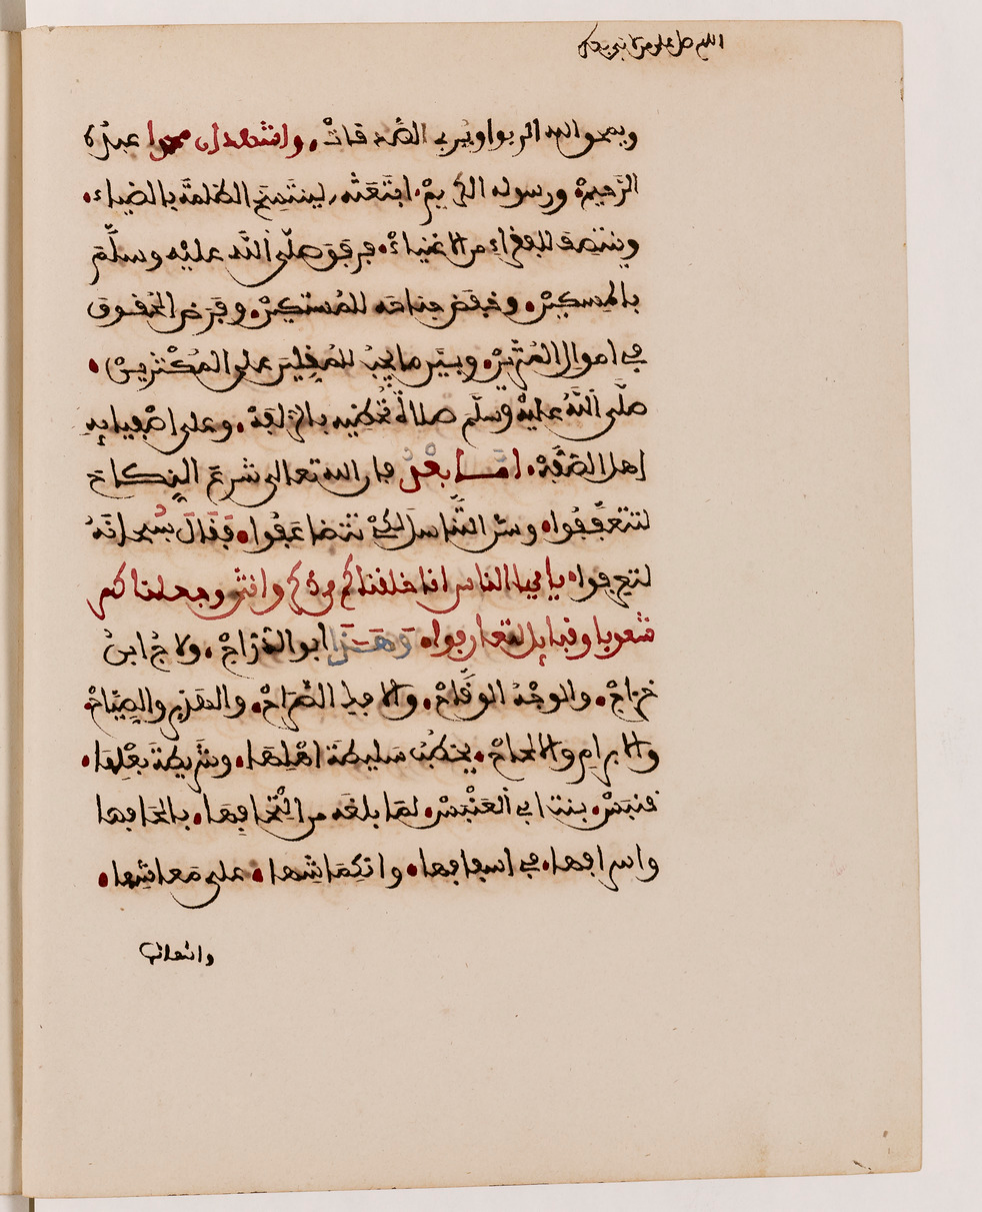 اللهم صل على من لا نبي بعده
ويمحو الله الربوا ويربي الصدقات، واشهد ان محمدا عبده
الرحيم، ورسوله الكريم، ابتعثه، لينتسخ الظلمة بالضياء،
وينتصف للفقراء من الاغنياء، فرفق صلى الله عليه وسلم
بالمسكين، وخفض جناحه للمستكين، وفرض الحقوق
في اموال المثرين، وبين ما يجب للمقلين على المكثرين،
صلى الله عليه وسلم صلاة تحظيه بالزلفة، وعلى اصفيايه
اهل الصفة، اما بعد فان الله تعالى شرع النكاح
لتتعففوا، وسن التناسل لكي تتضاعفوا، فقال سبحانه
لتعرفوا، يا ايها الناس انا خلقناكم من ذكر وانثى وجعلناكم
شعوبا وقبايل لتعارفوا، وهذا ابو الدراج، ولاج ابن
خراج، والوجه الوقاح، والافك الصراح، والهرير والصياح،
والابرام والالحاح، يخطب سليطة اهلها، وشريطة بعلها،
قنبس، بنت ابي العنبس، لما بلغه من التحافها، بالحافها
واسرافها، في اسفافها، وانكماشها، على معاشها،
وانتعاشها